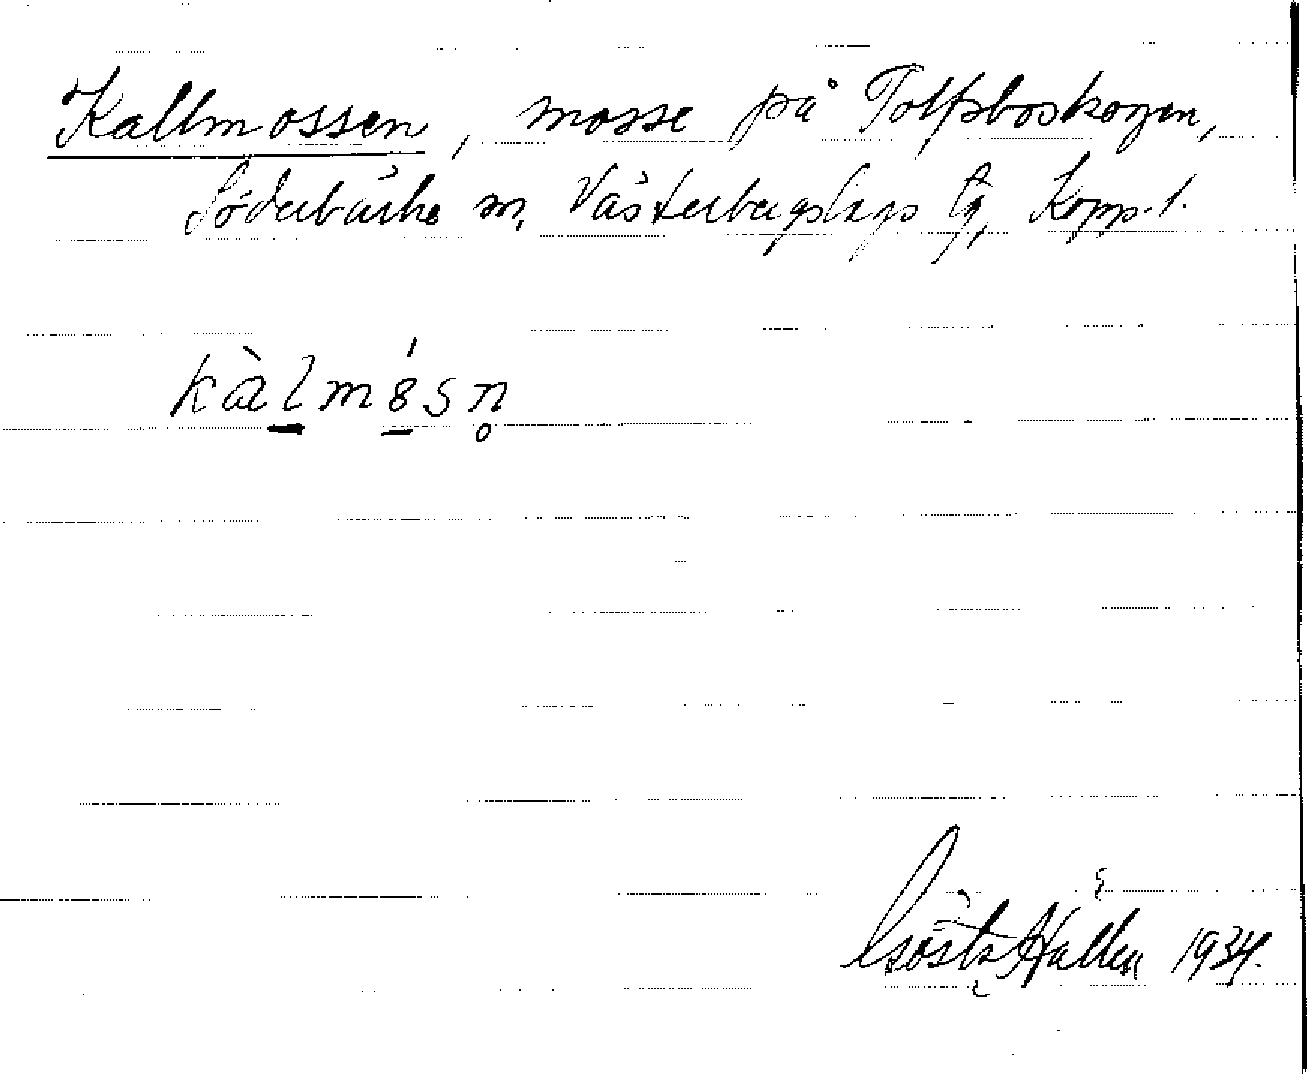 Kallmossen, mosse på Tolfsboskogen,
Söderbärke sn, Västerbergslags tg, Kopp. l.
kàl̠mó̠sn̥
Gösta Hallén 1934.